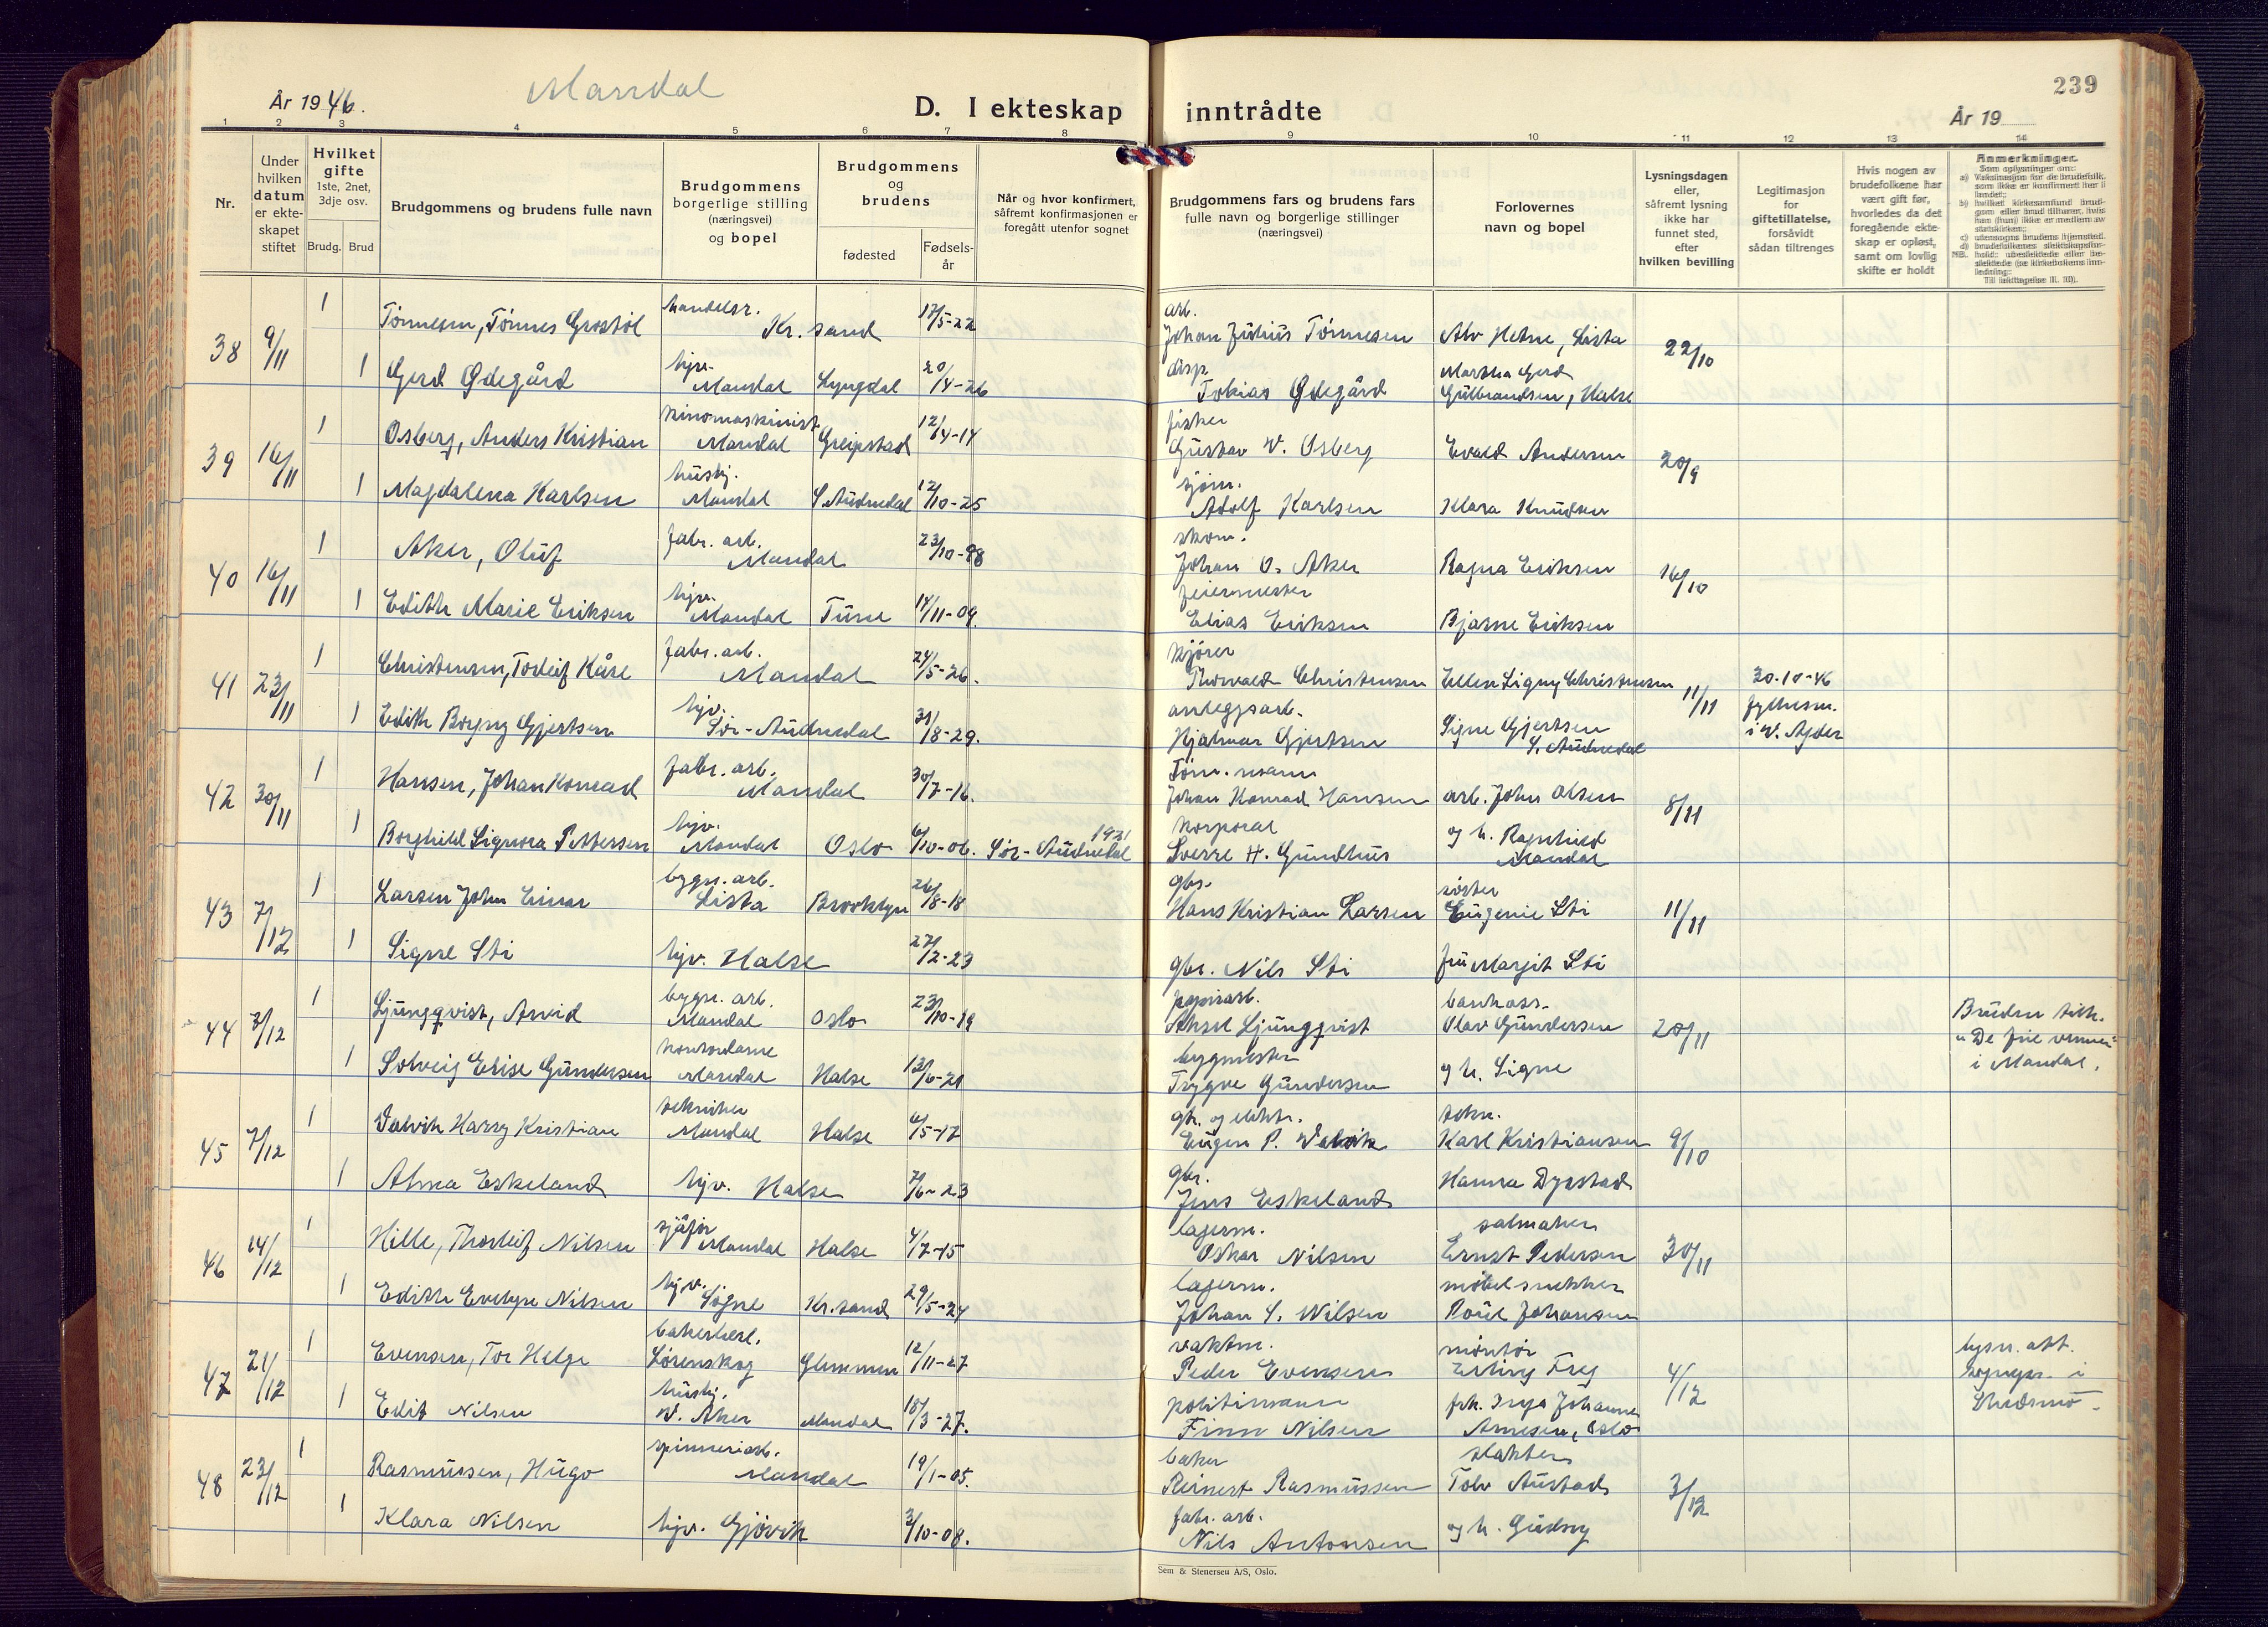 Mandal
239
År 1946.
D. I ekteskap inntrådte
År 19
1 2 3 4 5 6 7 8 9 10 11 12 13 14
Nr.
Under hvilken datum er ekteskapet stiftet
Hvilket gifte 1ste, 2net, 3dje osv.
Brudg. Brud
Brudgommens og brudens fulle navn
Brudgommens borgerlige stilling (næringsvei) og bopel
Brudgommens og brudens
fødested
Fødsels-år
Når og hvor konfirmert, såfremt konfirmasjonen er foregått utenfor sognet
Brudgommens fars og brudens fars fulle navn og borgerlige stillinger (næringsvei)
Forlovernes navn og bopel
Lysningsdagen eller, såfremt lysning ikke har funnet sted, efter hvilken bevilling
Legitimasjon for giftetillatelse, forsåvidt sådan tiltrenges
Hvis nogen av brudefolkene har vært gift før, hvorledes da det foregående ekteskap er opløst, samt om lovlig skifte er holdt
Anmerkninger.
38 9/11 1 Tønnesen, Tønnes Grostøl handelsr. Kr.sand 17/5-22 arb. Johan Julius Tønnesen Alv Hetne, Lista 22/10
1 Gerd Ødegård hjv. Mandal Lyngdal 20/4-26 disp. Tobias Ødegård Martha Gerd Gulbrandsen, Halse
39 16/11 1 Osberg, Anders Kristian kinomaskinist Mandal Greipstad 12/4-14 fisker Gustav W. Osberg Evald Andersen 20/9
1 Magdalena Karlsen hushj. Mandal S. Audnedal 12/10-25 sjøm. Adolf Karlsen Klara Knudsen
40 16/11 1 Aker, Oluf fabr. arb. Mandal 23/10-98 skom. Johan O. Aker Ragna Eriksen 16/10
1 Edith Marie Eriksen hjv. Mandal Tune 14/11-09. feiermester Elias Eriksen Bjarne Eriksen
41 23/11 1 Christensen, Torleif Kåre fabr. arb. Mandal 24/5-26. kjører Thorvald Christensen Ellen Signy Christensen 11/11 30-10-46 fylkesm. i V. Agder
1 Edith Borgny Gjertsen hjv. Sør-Audnedal 31/8-29. anleggsarb. Hjalmar Gjertsen Signe Gjertsen S. Audnedal
42 30/11 1 Hansen, Johan Konrad fabr. arb. Mandal 30/7-16. tøm. mann Johan Konrad Hansen arb. John Olsen 8/11
1 Borghild Signora Pettersen hjv. Mandal Oslo 6/10-06. 1921 Sør-Audnedal korporal Sverre H. Gundhus og h. Ragnhild Mandal
43 7/12 1 Larsen John Einar bygn. arb. Lista Brooklyn 26/8-18 gbr. Hans Kristian Larsen søster Eugenie Sti 11/11
1 Signe Sti hjv. Halse 27/2-23 gbr. Nils Sti fru Margit Sti
44 7/12 1 Ljungqvist, Arvid bygn. arb. Mandal Oslo 23/10-19 papirarb. Aksel Ljungqvist bankass. Olav Gundersen 20/11 Bruden tilh. "De frie venner" i Mandal.
1 Solveig Elise Gundersen kontordame Mandal Halse 13/6-21 bygmester Trygve Gundersen og h. Signe
45 7/12 1 Valvik Harry Kristian tekniker Mandal Halse 6/5-17 gbr. og elektr. Eugen P. Valvik tekn. Karl Kristiansen 9/10
1 Alma Eskeland hjv. Halse 7/6-23 gbr. Jens Eskeland Hanna Dyrstad
46 14/12 1 Hille, Thorleif Nilsen sjåfør Mandal Halse 4/7-15 lagerm. Oskar Nilsen salmaker Ernst Pedersen 30/11
1 Edith Evelyn Nilsen hjv. Søgne Kr.sand 29/5-24 lagerm. Johan S. Nilsen møbelsnekker Poul Johansen
47 21/12 1 Evensen, Tor Helge bakerbest. Lørenskog Glemmen 12/11-27 vaktm. Peder Evensen montør Erling Frey 4/12 lysn. att. sognepr. i
1 Edit Nilsen hushj. V. Aker Mandal 18/3-27. politimann Finn Nilsen frk. Inga Johanne Arnesen, Oslo
48 23/12 1 Rasmussen, Hugo spinneriarb. Mandal 19/1-05. baker Reinert Rasmussen slakter Tolv Austad 3/12
1 Klara Nilsen hjv. Gjøvik 3/10-08. fabr. arb. Nils Antonsen og h. Gudny
Sem & Stenersen A/S, Oslo.